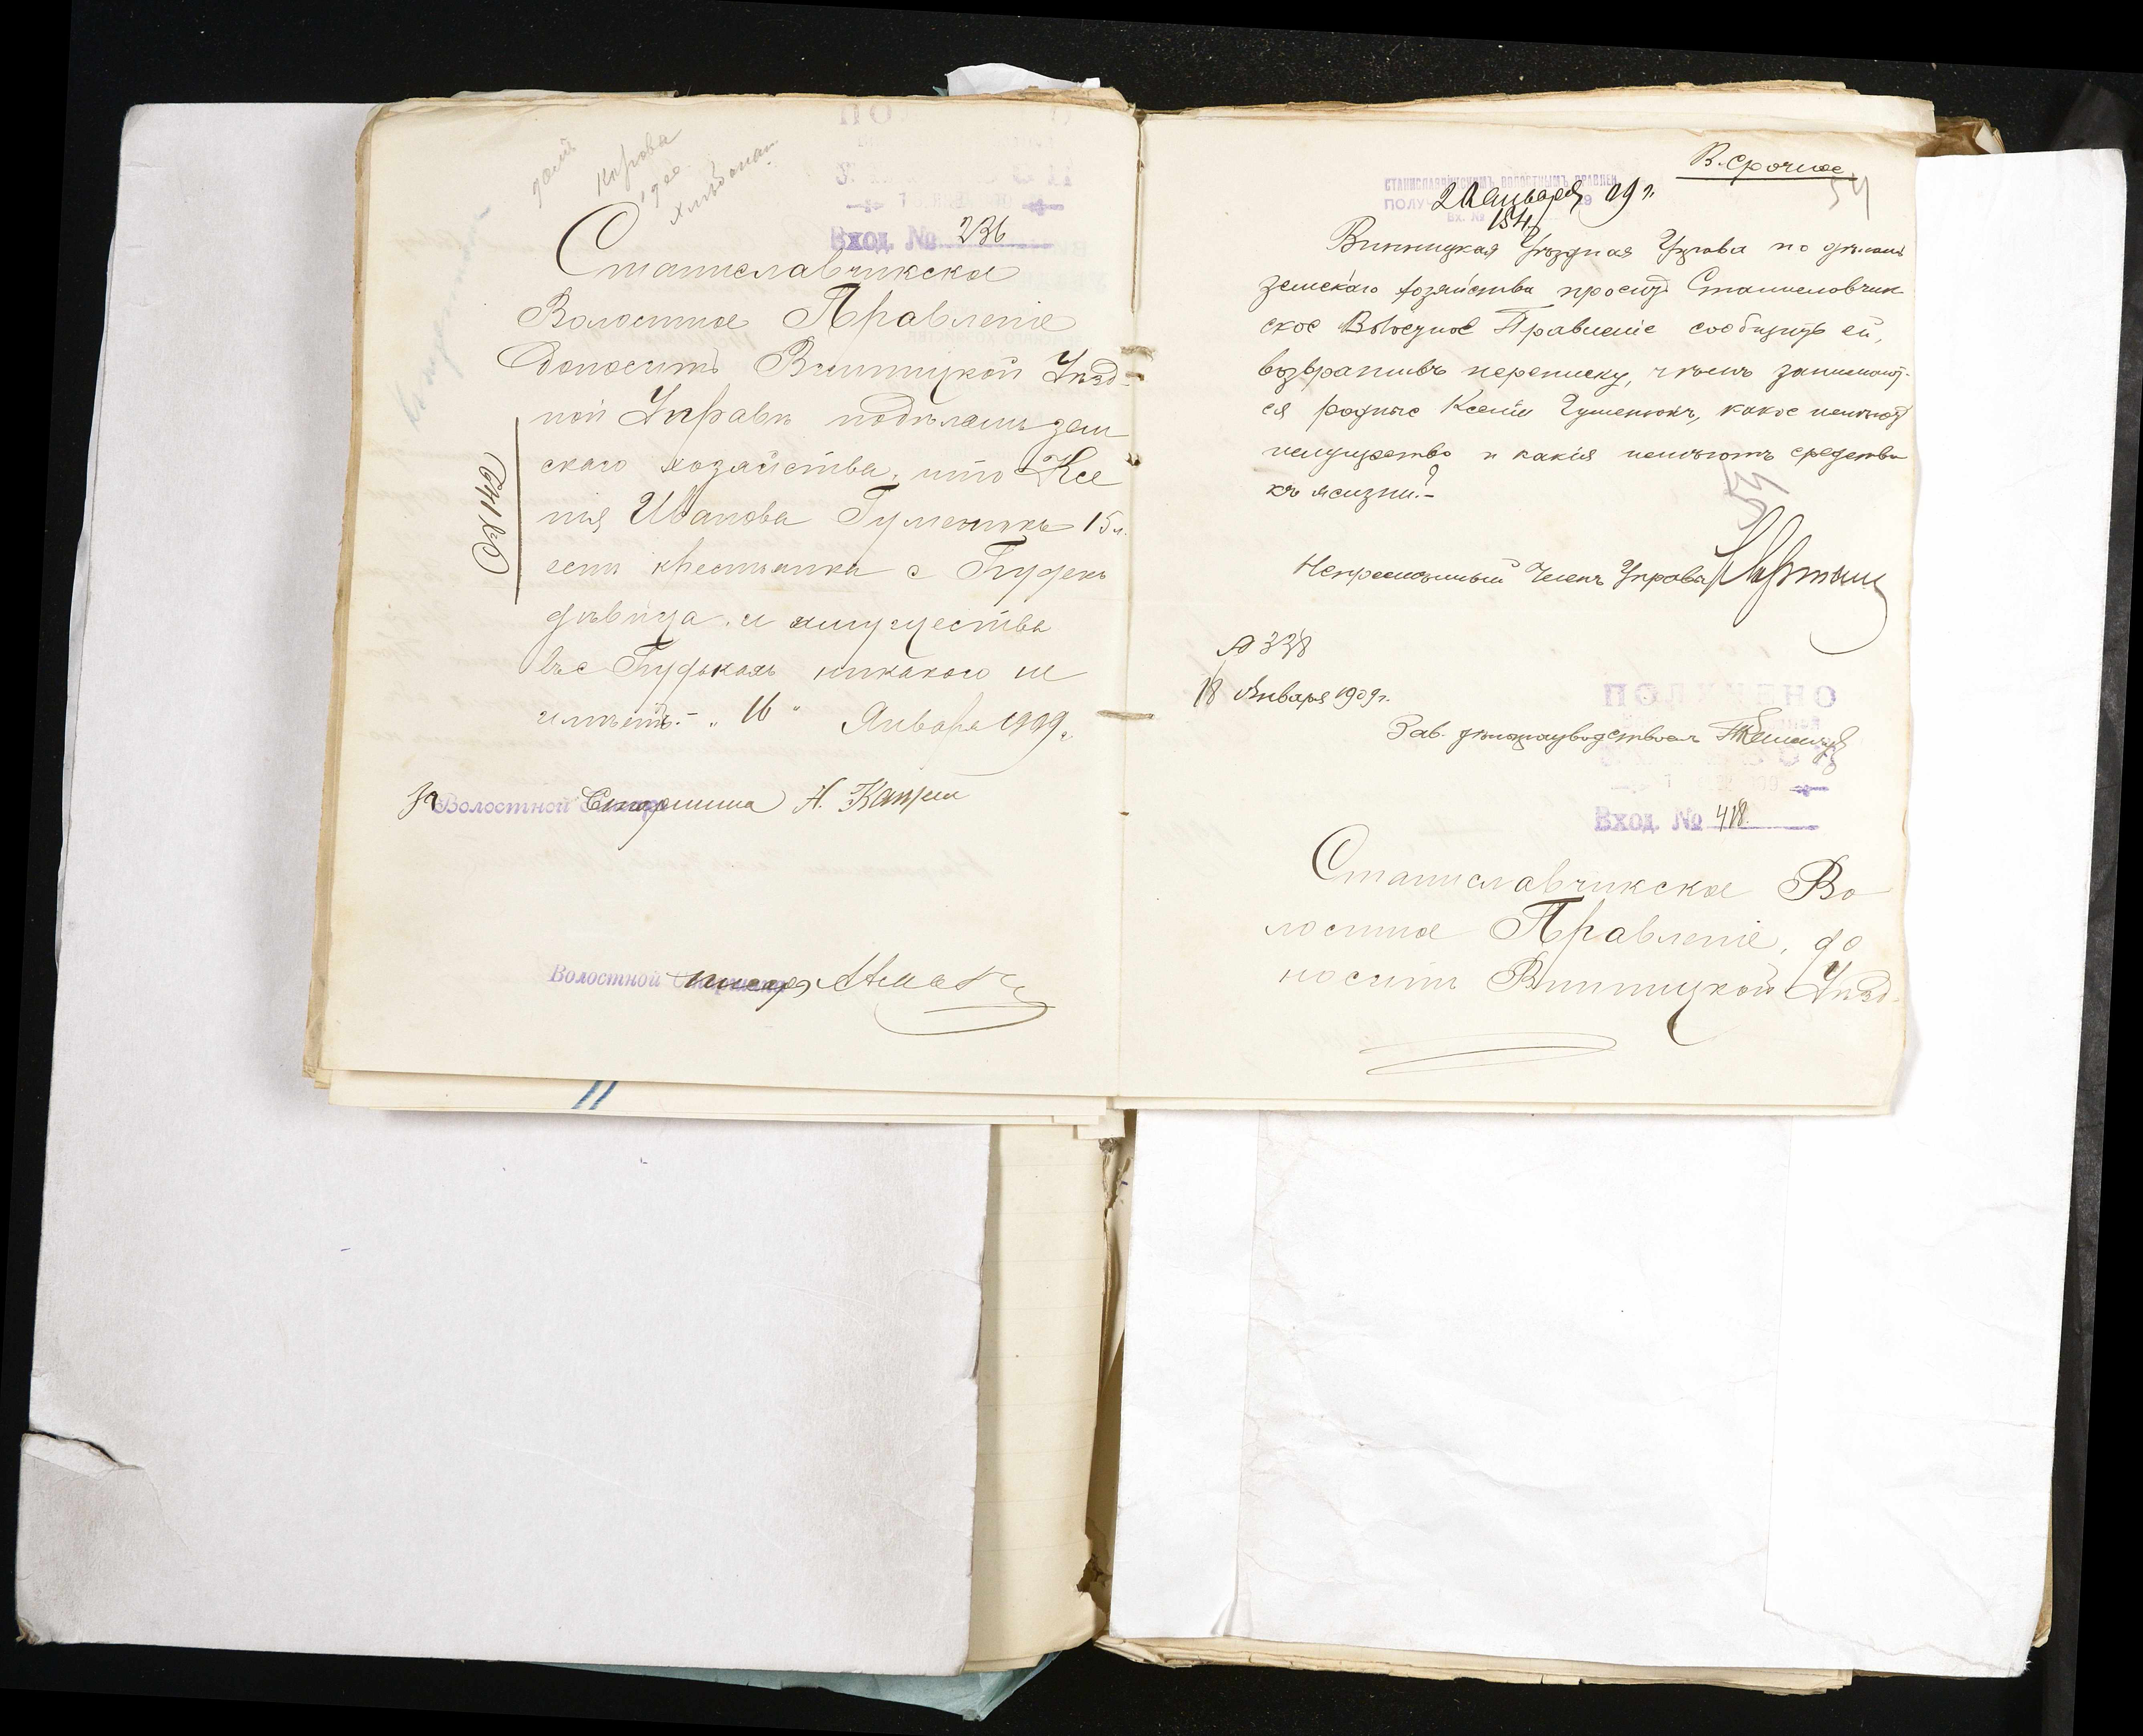 Вход. № 236
Станиславчикское
Волостное Правленіе
доноситъ Винницкой Уѣзд-
ной Управѣ по дѣламъ зем
скаго хозяйства, что Ксе
нія Иванова Гуменюкъ 15 л.
есть крестьянка с Будекъ
дѣвица, и имущества
въ с Будькахъ никакого не
имѣетъ.- „16" Января 1909 г.
№ 142
За Волостной Старшина А.
Волостной писарь
В. срочное
54
СТАНИСЛАВЧИКСКИМЪ ВОЛОСТНЫМЪ ПРАВЛЕН
ПОЛУЧ 20 Января 09 г.
Вх. № 154
Винницкая Уѣздная Управа по дѣламъ
земскаго хозяйства проситъ Станиславчик
ское Волостное Правленіе сообщить ей,
возвративъ переписку, чѣмъ занимают-
ся родные Ксеніи Гуменюкъ, какое имѣютъ
имущество и какія имѣютъ средства
къ жизни?-
54
Непремѣнный Членъ Управы
№ 338
18 Января 1909 г.
Зав. дѣлопроизводствомъ
Вход. № 418.
Станиславчикское Во
лостное Правленіе, до
носитъ Винницкой Уѣзд-